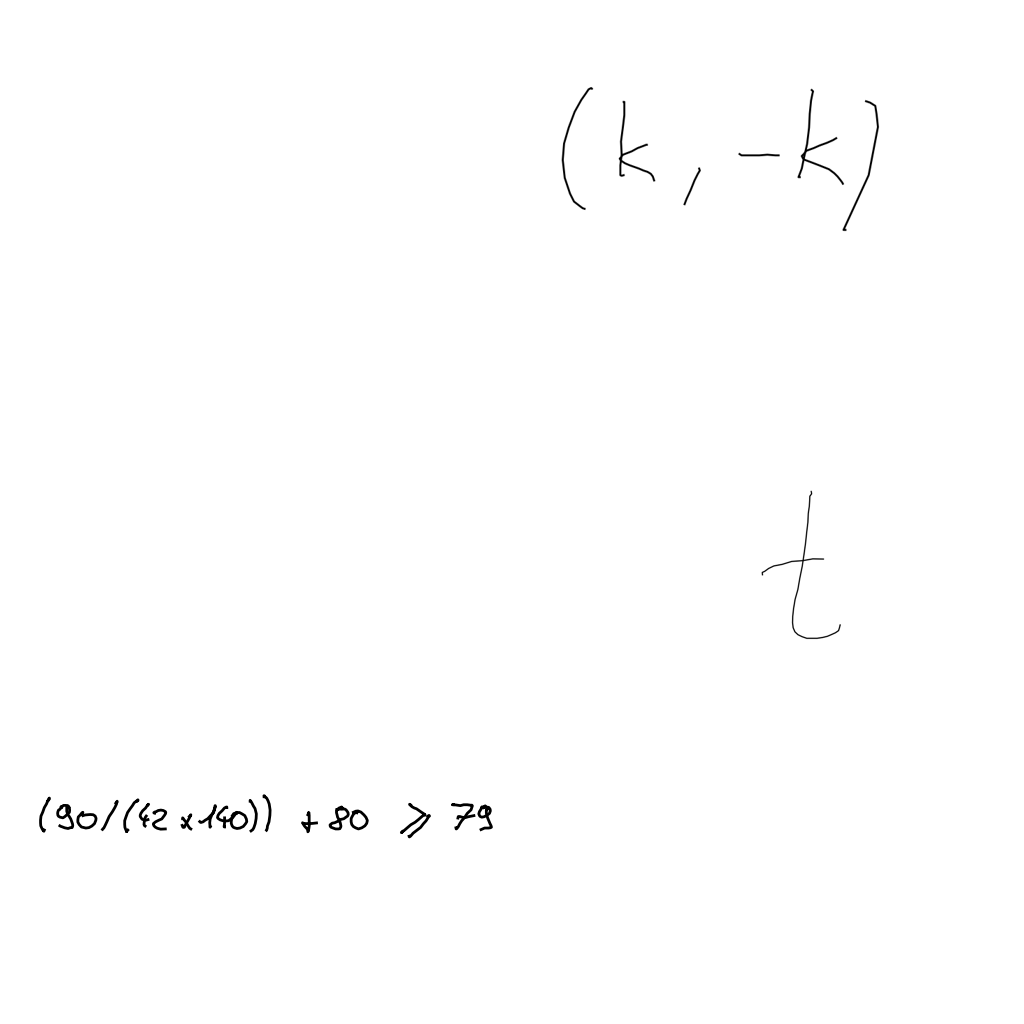 (k, -k)
t
(90/((42 x 140)) + 80 ⩾ 79